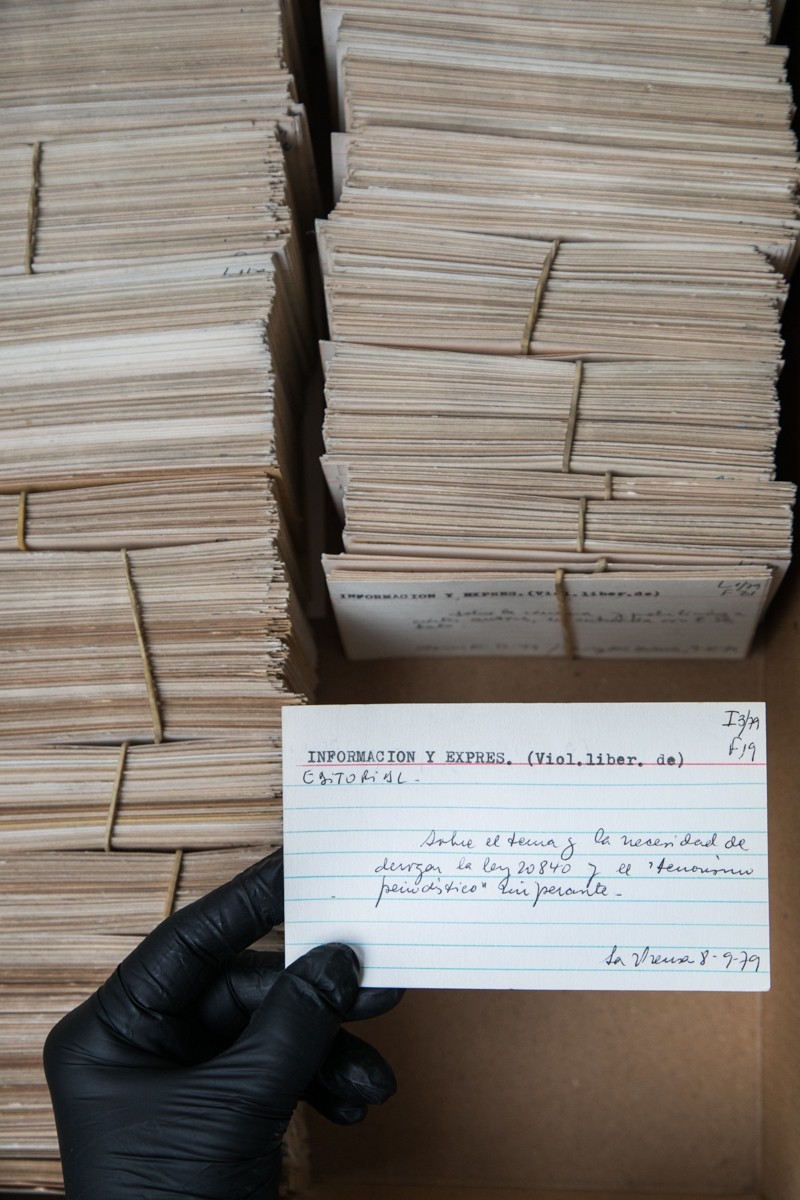 INFORMACION Y EXPRES.(Viol.liber.de)
L 1/79
I3/79
F19
INFORMACION Y EXPRES. (Viol.liber. de)
EDITORIAL.-
Sobre el tema y la necesidad de
derogar la ley 20840 y el "terrorismo
periodístico" imperante.-
La Prensa 8-9-79